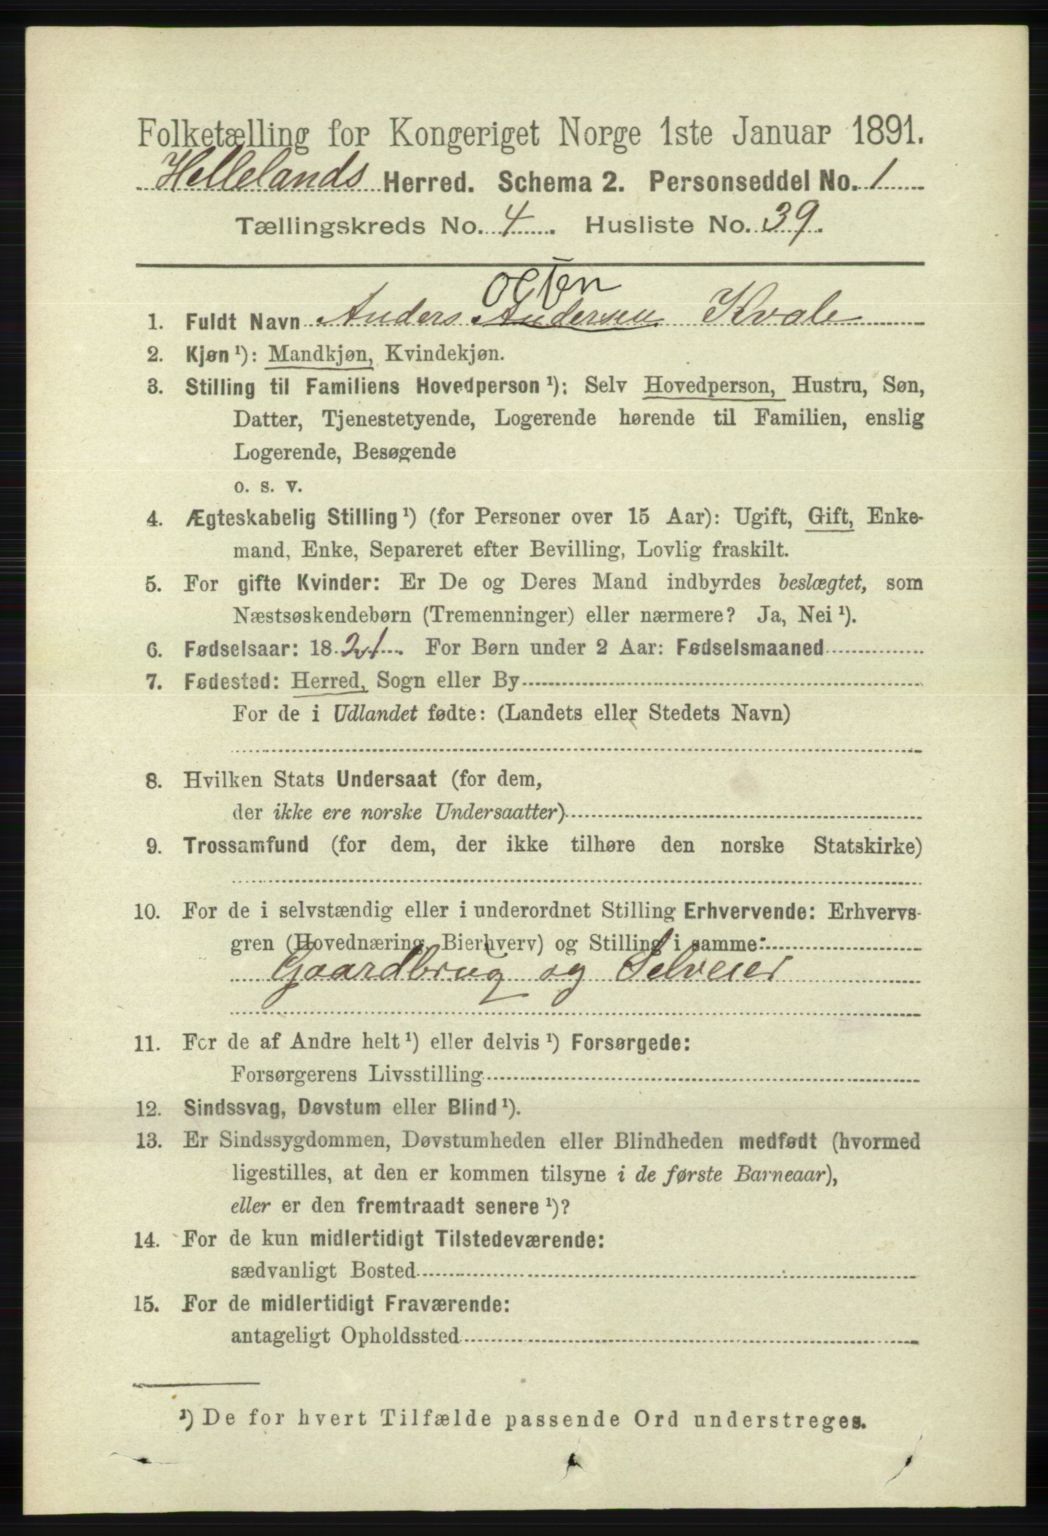 Folketælling for Kongeriget Norge 1ste Januar 1891.
Hellelands Herred. Schema 2. Personseddel No. 1
Tællingskreds No. 4. Husliste No. 39.
Olsen
1. Fuldt Navn Anders Andersen Kvale
2. Kjøn ¹): Mandkjøn, Kvindekjøn.
3. Stilling til Familiens Hovedperson ¹): Selv Hovedperson, Hustru, Søn,
Datter, Tjenestetyende, Logerende hørende til Familien, enslig
Logerende, Besøgende
o. s. v.
4. Ægteskabelig Stilling ¹) (for Personer over 15 Aar): Ugift, Gift, Enke-
mand, Enke, Separeret efter Bevilling, Lovlig fraskilt.
5. For gifte Kvinder: Er De og Deres Mand indbyrdes beslægtet, som
Næstsøskendebørn (Tremenninger) eller nærmere? Ja, Nei ¹).
6. Fødselsaar: 1821. For Børn under 2 Aar: Fødselsmaaned
7. Fødested: Herred, Sogn eller By
For de i Udlandet fødte: (Landets eller Stedets Navn)
8. Hvilken Stats Undersaat (for dem,
der ikke ere norske Undersaatter)
9. Trossamfund (for dem, der ikke tilhøre den norske Statskirke)
10. For de i selvstændig eller i underordnet Stilling Erhvervende: Erhvervs-
gren (Hovednæring, Bierhverv) og Stilling i samme:
Gaardbrug og Selveier
11. For de af Andre helt ¹) eller delvis ¹) Forsørgede:
Forsørgerens Livsstilling
12. Sindssvag, Døvstum eller Blind ¹).
13. Er Sindssygdommen, Døvstumheden eller Blindheden medfødt (hvormed
ligestilles, at den er kommen tilsyne i de første Barneaar),
eller er den fremtraadt senere ¹)?
14. For de kun midlertidigt Tilstedeværende:
sædvanligt Bosted
15. For de midlertidigt Fraværende:
antageligt Opholdssted
¹) De for hvert Tilfælde passende Ord understreges.